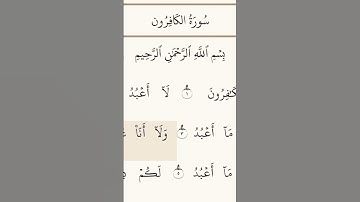 سُورَةُ الكَافِرُون
بِسْمِ ٱللَّهِ ٱلرَّحْمَٰنِ ٱلرَّحِيمِ
كَٰفِرُونَ ١ لَآ أَعْبُدُ
مَآ أَعْبُدُ ٣ وَلَآ أَنَا۠
مَآ أَعْبُدُ ٥ لَكُمْ